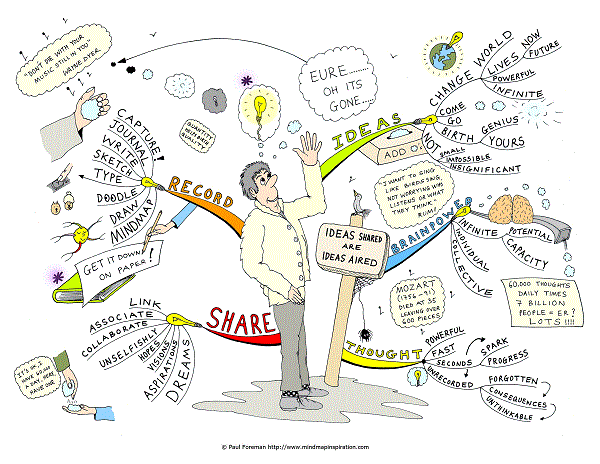 "DON'T DIE WITH YOUR
MUSIC STILL IN YOU"
WAYNE DYER
EURE.......
OH ITS
GONE....
QUANTITY
IDEAS
RECORD
CAPTURE!
JOURNAL
WRITE
SKETCH
TYPE
DOODLE
DRAW
MINDMAP
GET IT DOWN
ON PAPER!
IDEAS
CHANGE WORLD
LIVES
NOW
FUTURE
POWERFUL
INFINITE
COME
GO
BIRTH
GENIUS
YOURS
NOT
SMALL
IMPOSSIBLE
INSIGNIFICANT
ADD
"I WANT TO SING
LIKE BIRDS SING,
NOT WORRYING WHO
LISTENS OR WHAT
THEY THINK"
RUMI
IDEAS SHARED
ARE
IDEAS AIRED
BRAINPOWER
INFINITE
POTENTIAL
CAPACITY
INDIVIDUAL
COLLECTIVE
60,000 THOUGHTS
DAILY TIMES
7 BILLION
PEOPLE = ER?
LOTS !!!!
MOZART
(1756-91)
DIED AT 35
LEAVING OVER
600 PIECES
SHARE
LINK
ASSOCIATE
COLLABORATE
UNSELFISHLY
HOPES
VISIONS
ASPIRATIONS
DREAMS
IT'S OK I
HAVE 60,000
A DAY. HERE
HAVE ONE
THOUGHT
POWERFUL
FAST
SECONDS
SPARK
PROGRESS
UNRECORDED
FORGOTTEN
CONSEQUENCES
UNTHINKABLE
© Paul Foreman http://www.mindmapinspiration.com